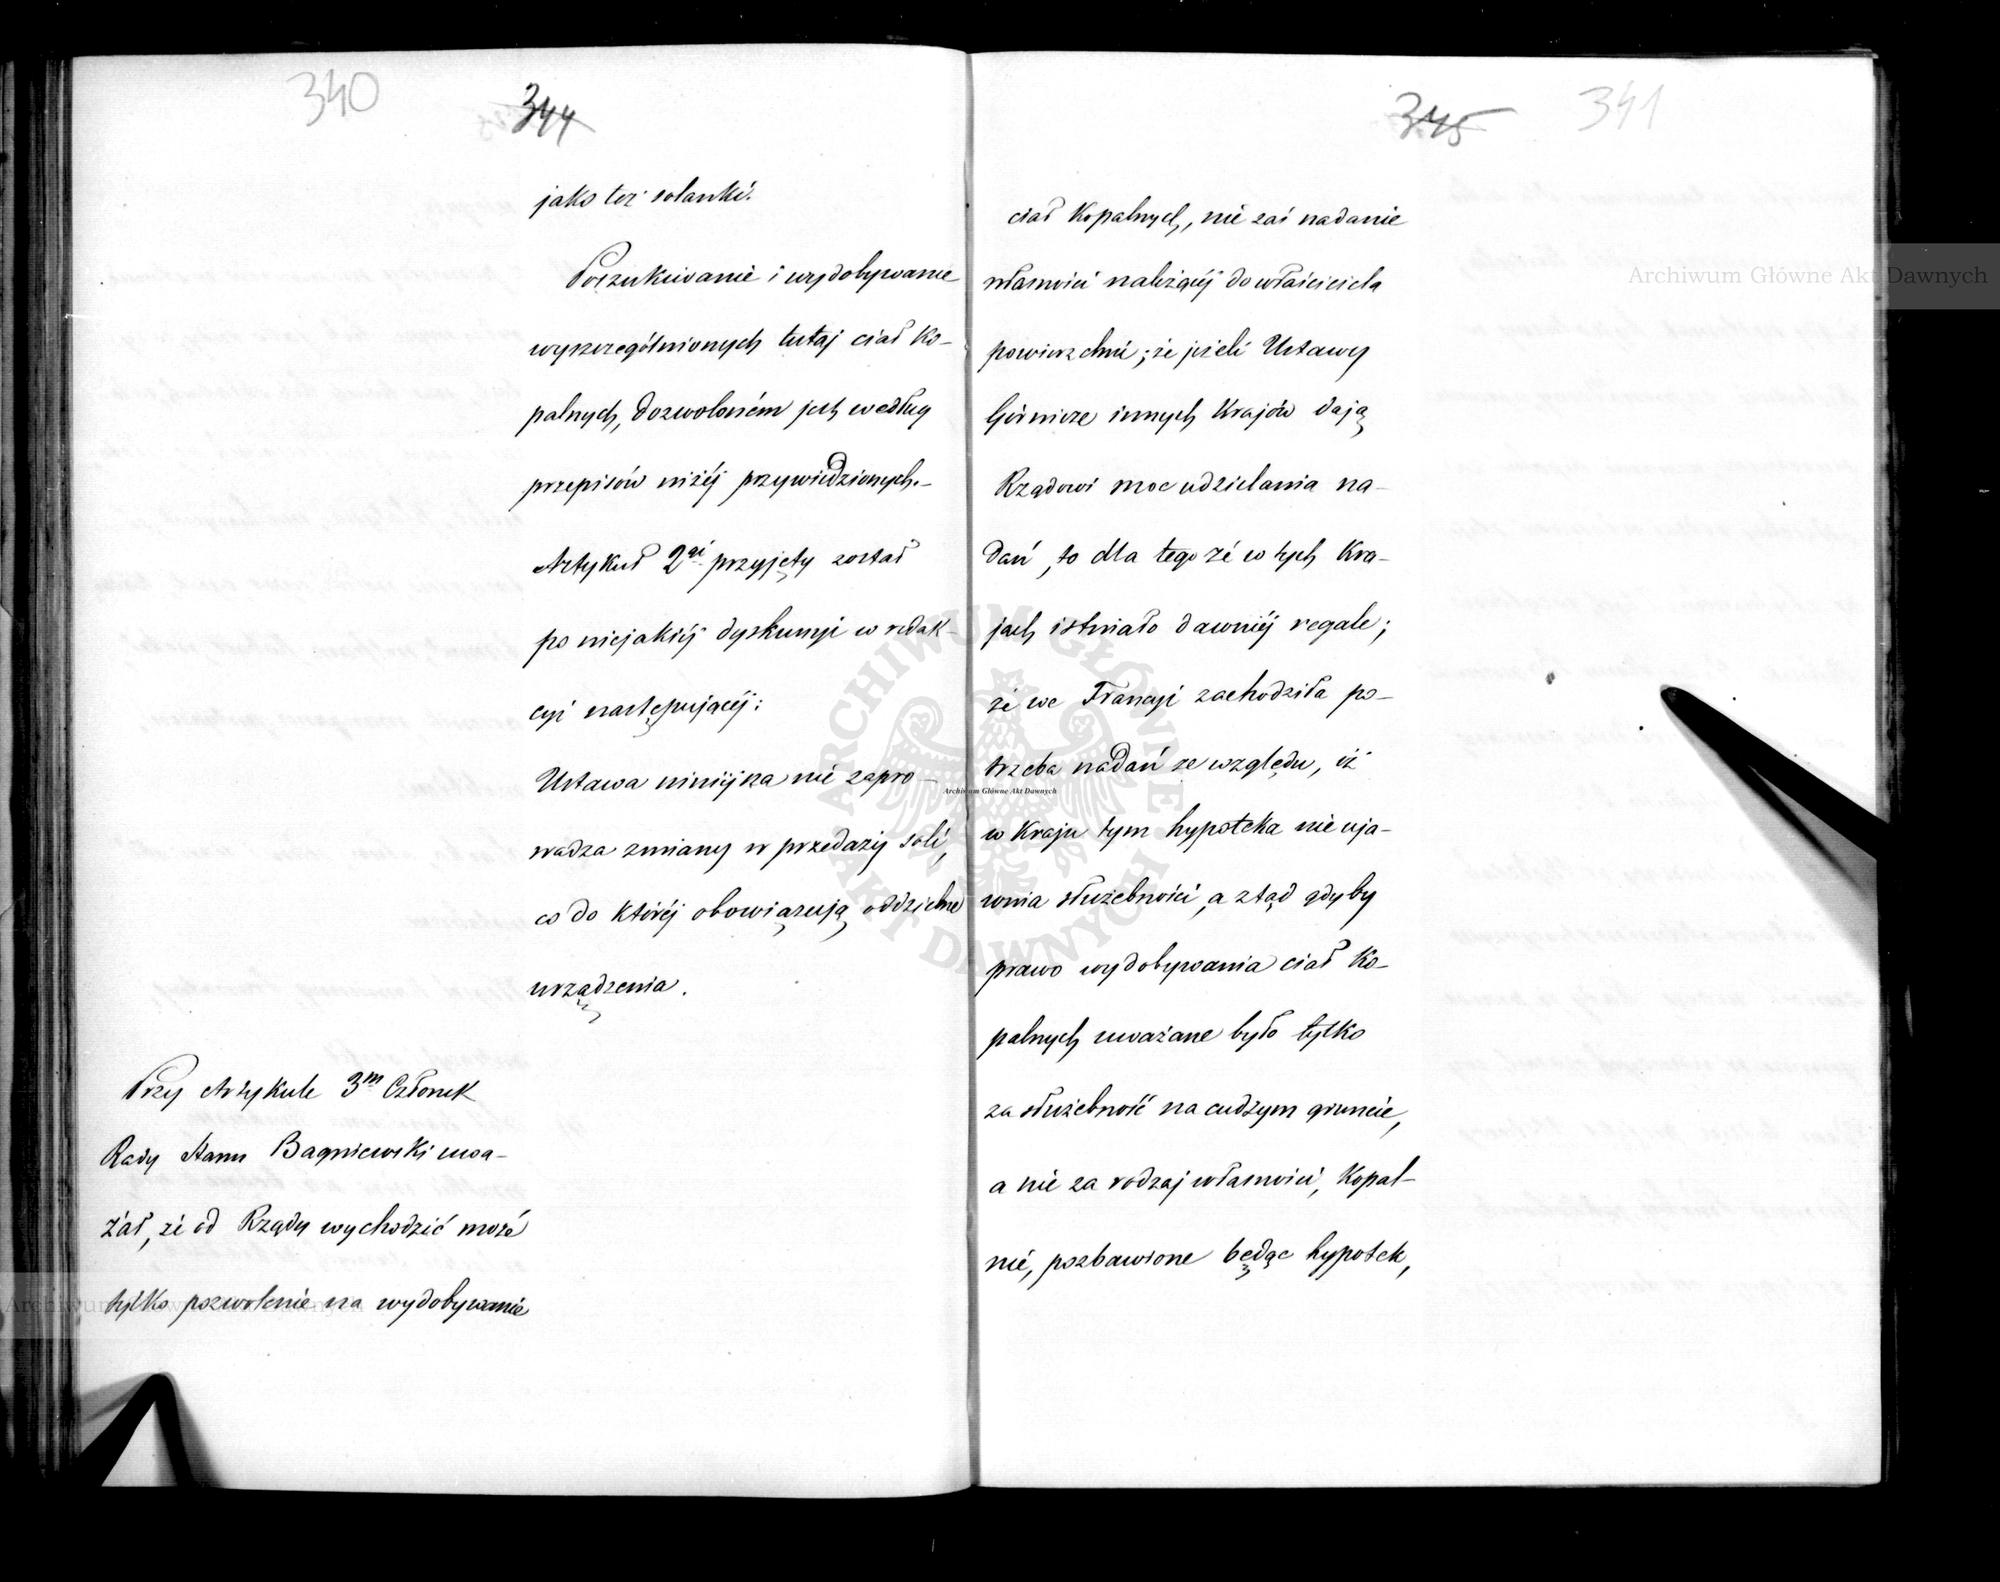 340
344
jako też solanki.
Poszukiwanie i wydobywanie
wyszczególnionych tutaj ciał ko-
palnych, dozwoloném jest według
przepisów niżéj przywiedzionych.-
Artykuł 2gi przyjęty został
po niejakiéj dyskussyi w redak-
cyi następującéj:
Ustawa niniéjsza nie zapro-
wadza zmiany w przedaży soli,
co do któréj obowiązują oddzielne
urządzenia.
Przy Artykule 3m Członek
Rady Stanu Bagniewski uwa-
żał, że od Rządu wychodzić może
tylko pozwolenie na wydobywanie
345
341
ciał Kopalnych, nie zaś nadanie
własności należącéj do właściciela
powierzchni; że jeżeli Ustawy
Górnicze innych Krajów dają
Rządowi moc udzielania na-
dań, to dla tego że w tych Kra-
jach istniało dawniéj regale;
że we Francyi zachodziła po-
trzeba nadań ze względu, iż
w Kraju tym hypoteka nie uja-
wnia służebności, a ztąd gdyby
prawo wydobywania ciał Ko-
palnych uważane było tylko
za służebność na cudzym gruncie,
a nie za rodzaj własności, Kopal-
nie, pozbawione będąc hypotek,
Archiwum Główne Akt Dawnych
ARCHIWUM GŁÓWNE AKT DAWNYCH
Archiwum Główne Akt Dawnych
Archiwum Główne Akt Dawnych